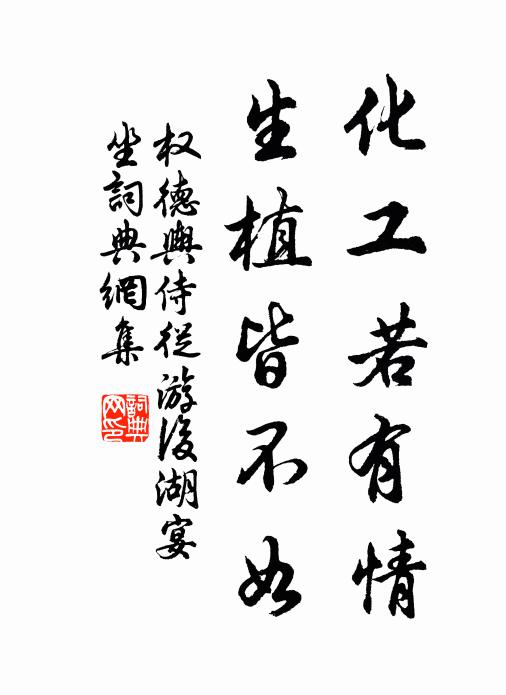 化工若有情
生植皆不如
权德輿侍從游後湖宴
坐詞典網集
詞典
网印